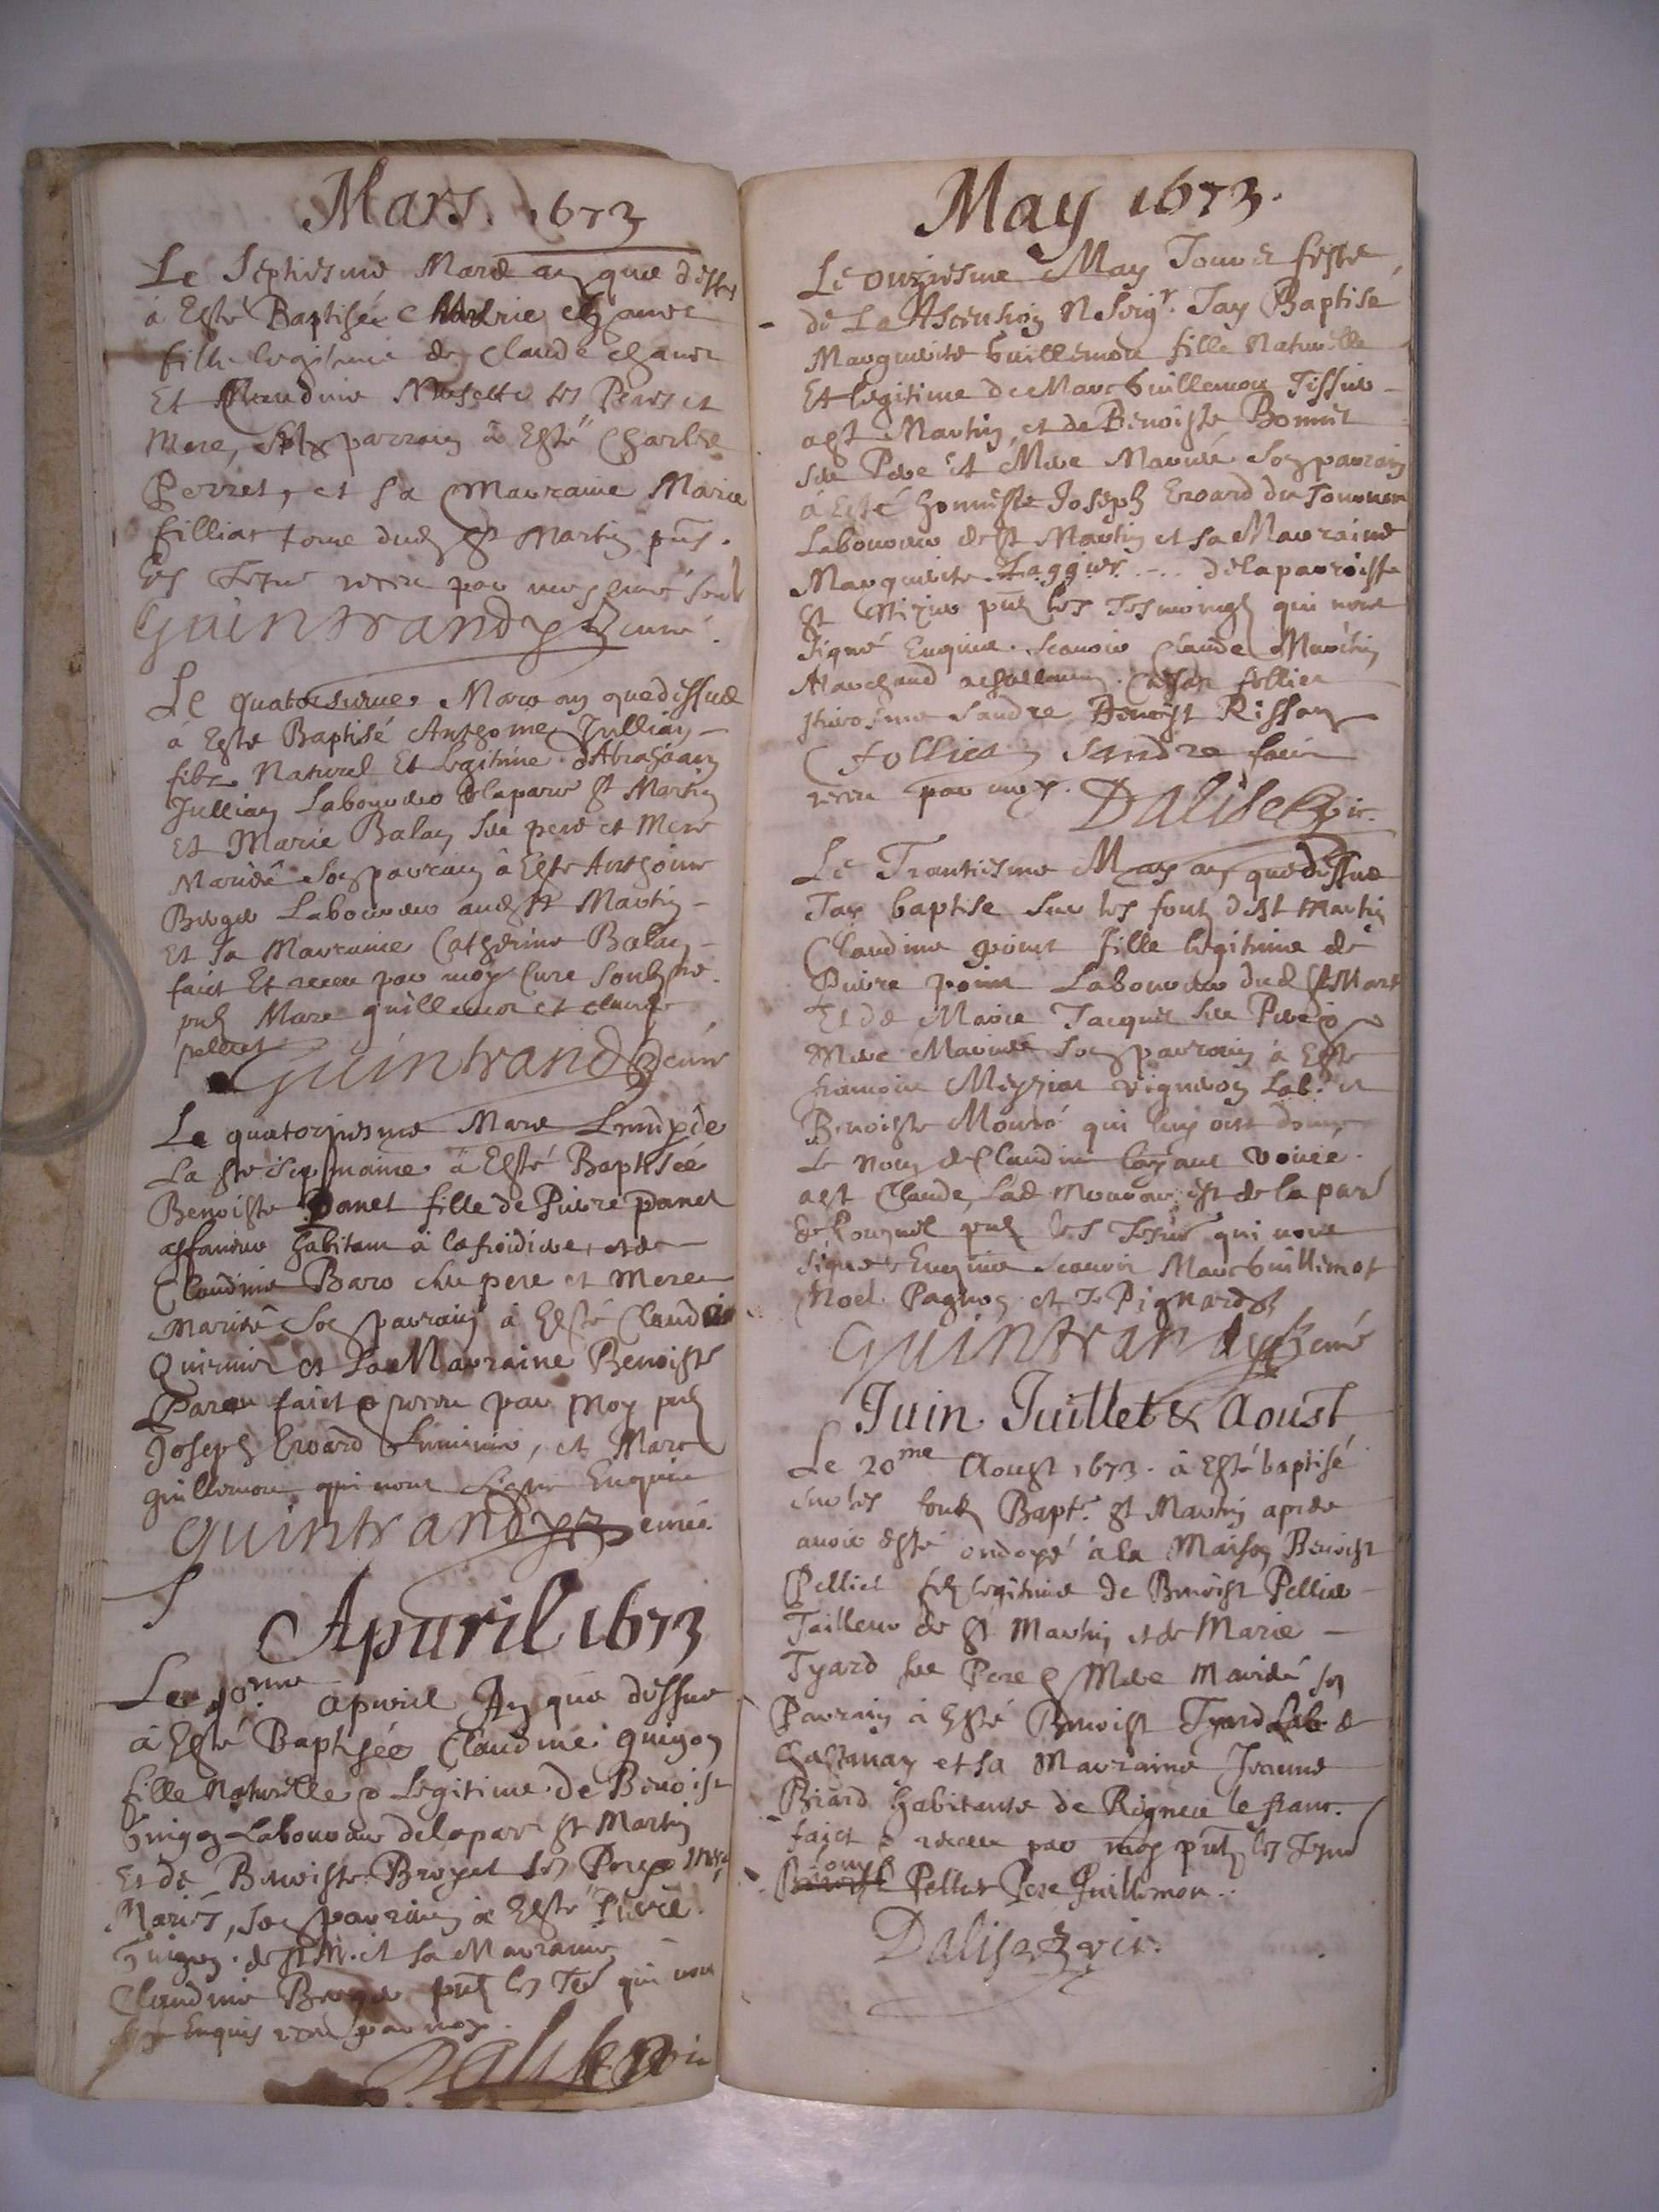 Mars. 1673
Le Septiesme Mars an que dessus
à Esté Baptisée Marie Chanet
fille legitime de Claude Chanet
Et Claudine Musette ses Peres et
Mere, Son parrain à Esté Charles
Perret, et sa Marraine Marie
filliat tous dud St Martin pnts.
les receu par moy curé soub
Guintrandy curé.
Le quatorsiesme Mars an que dessus
à Esté Baptisé Anthoine Jullian
fils Naturel Et legitime d'Abraham
Jullian Laboureur de la parr St Martin
Et Marie Balan ses pere et Mere
Mariés son parrain à Esté Anthoine
Berger Laboureur aud St Martin
Et sa Marraine Catherine Balan
faict Et receu par moy Curé soubsné
pnts Marc guillemot et claude
pellet
Guintrandy curé
Le quatorziesme Mars Lundy de
La ste sepmaine à Esté Baptisée
Benoiste Panet fille de Pierre Panet
affaneur habitant à la froidiere, et de
Claudine Baro ses pere et Mere
Mariés Son parrain à Esté Claude
et sa Marraine Benoiste
faict & receu par Moy pnts
Joseph Evrard, et Marc
guillemon qui nont signé Enquis
Guintrandy curé.
Apuril 1673
Le 10me apuril An que dessus
à Esté Baptisée Claudine guigon
fille Naturelle & Legitime de Benoist
Guigon Laboureur de la parr St Martin
Et de Benoiste Broyet ses Pere & Mere
Mariés, son parrain à Esté Pierre
Guigon de St M. et sa Marraine
Claudine Berger pnts les Tes qui nont
signé Enquis receu par moy.
Dalise vic
May 1673.
Le onziesme May Jour & feste
de La Ascension N Seigr. Jay Baptisé
Marguerite Guillemon fille Naturelle
Et legitime de Marc Guillemon Tissier
à St Martin, et de Benoiste Bonnet
ses Pere et Mere Mariés, son parrain
à Esté honneste Joseph Evrard du
Laboureur de St Martin et sa Marraine
Marguerite Faggier - .. de la parroisse
St pnts les Tesmoingts qui nont
signé Enquis. Scauoir Claude Martin
Marchand follier
Sandre Benoist Risson
follier Sandre faict
receu par moy. Dalise vic.
Le Trantiesme May an que dessus
Jay baptisé sur les fonts de St Martin
Claudine point fille legitime de
Pierre point Laboureur dud St Mart
Et de Marie Jacquet ses Pere &
Mere Mariés son parrain à Esté
francois Meyriat vigneron Lab. et
Benoiste qui luy ont donné
Le nom de Claudine layant vouée
à St Claude, est de la parr
de pnts les Tesm qui nont
signé Enquis scauoir Marc Guillimot
Noel Pagnon et J. Pignard
Guintrandy curé
Juin. Juillet & Aoust
Le 20me Aoust 1673. à Esté baptisé
sur les fonts Bapt. St Martin apres
auoir esté ondoyé à la Maison Benoist
Pelliet fils legitime de Benoist Pelliet
Tailleur de St Martin et de Marie
Tyard ses Pere & Mere Mariés son
Parrain à Esté Benoist Tyard Lab. de
Chastenay et sa Marraine Jeanne
Biard habitante de Rigneu le franc.
faict & receu par moy pnts les Tsms
Pellet Pere Guillemon.
Dalise vic.